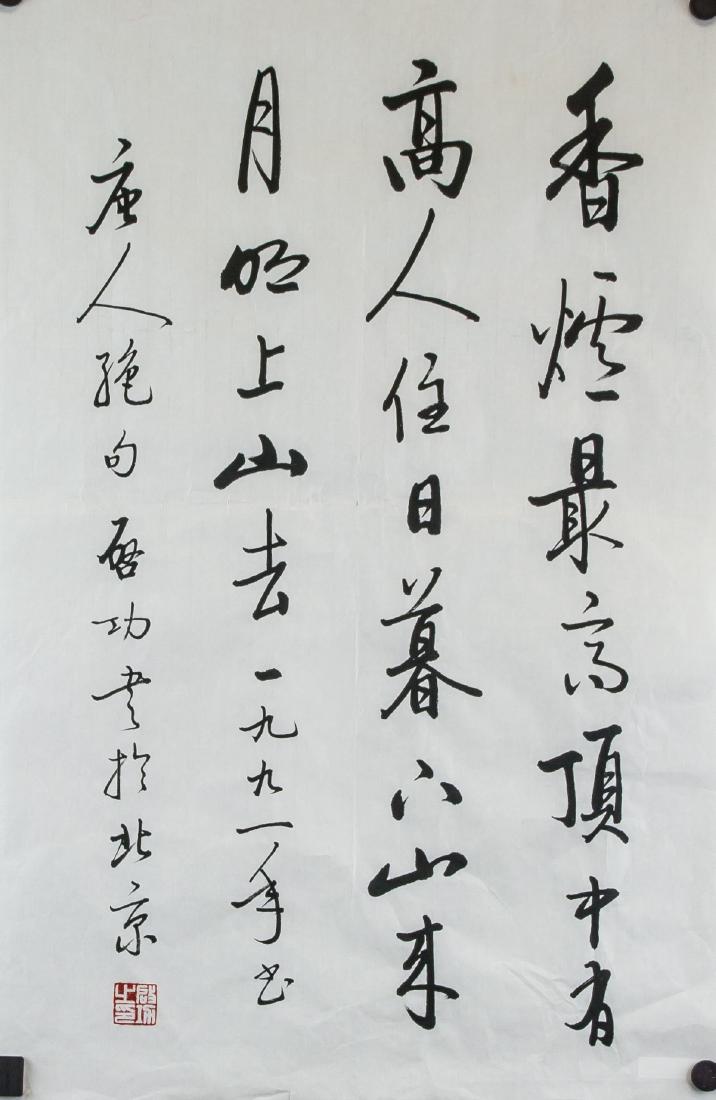 香爐最高頂中有
高人住日暮下山來
月明上山去一九九一年書
唐人絕句啓功書於北京
啓功之印